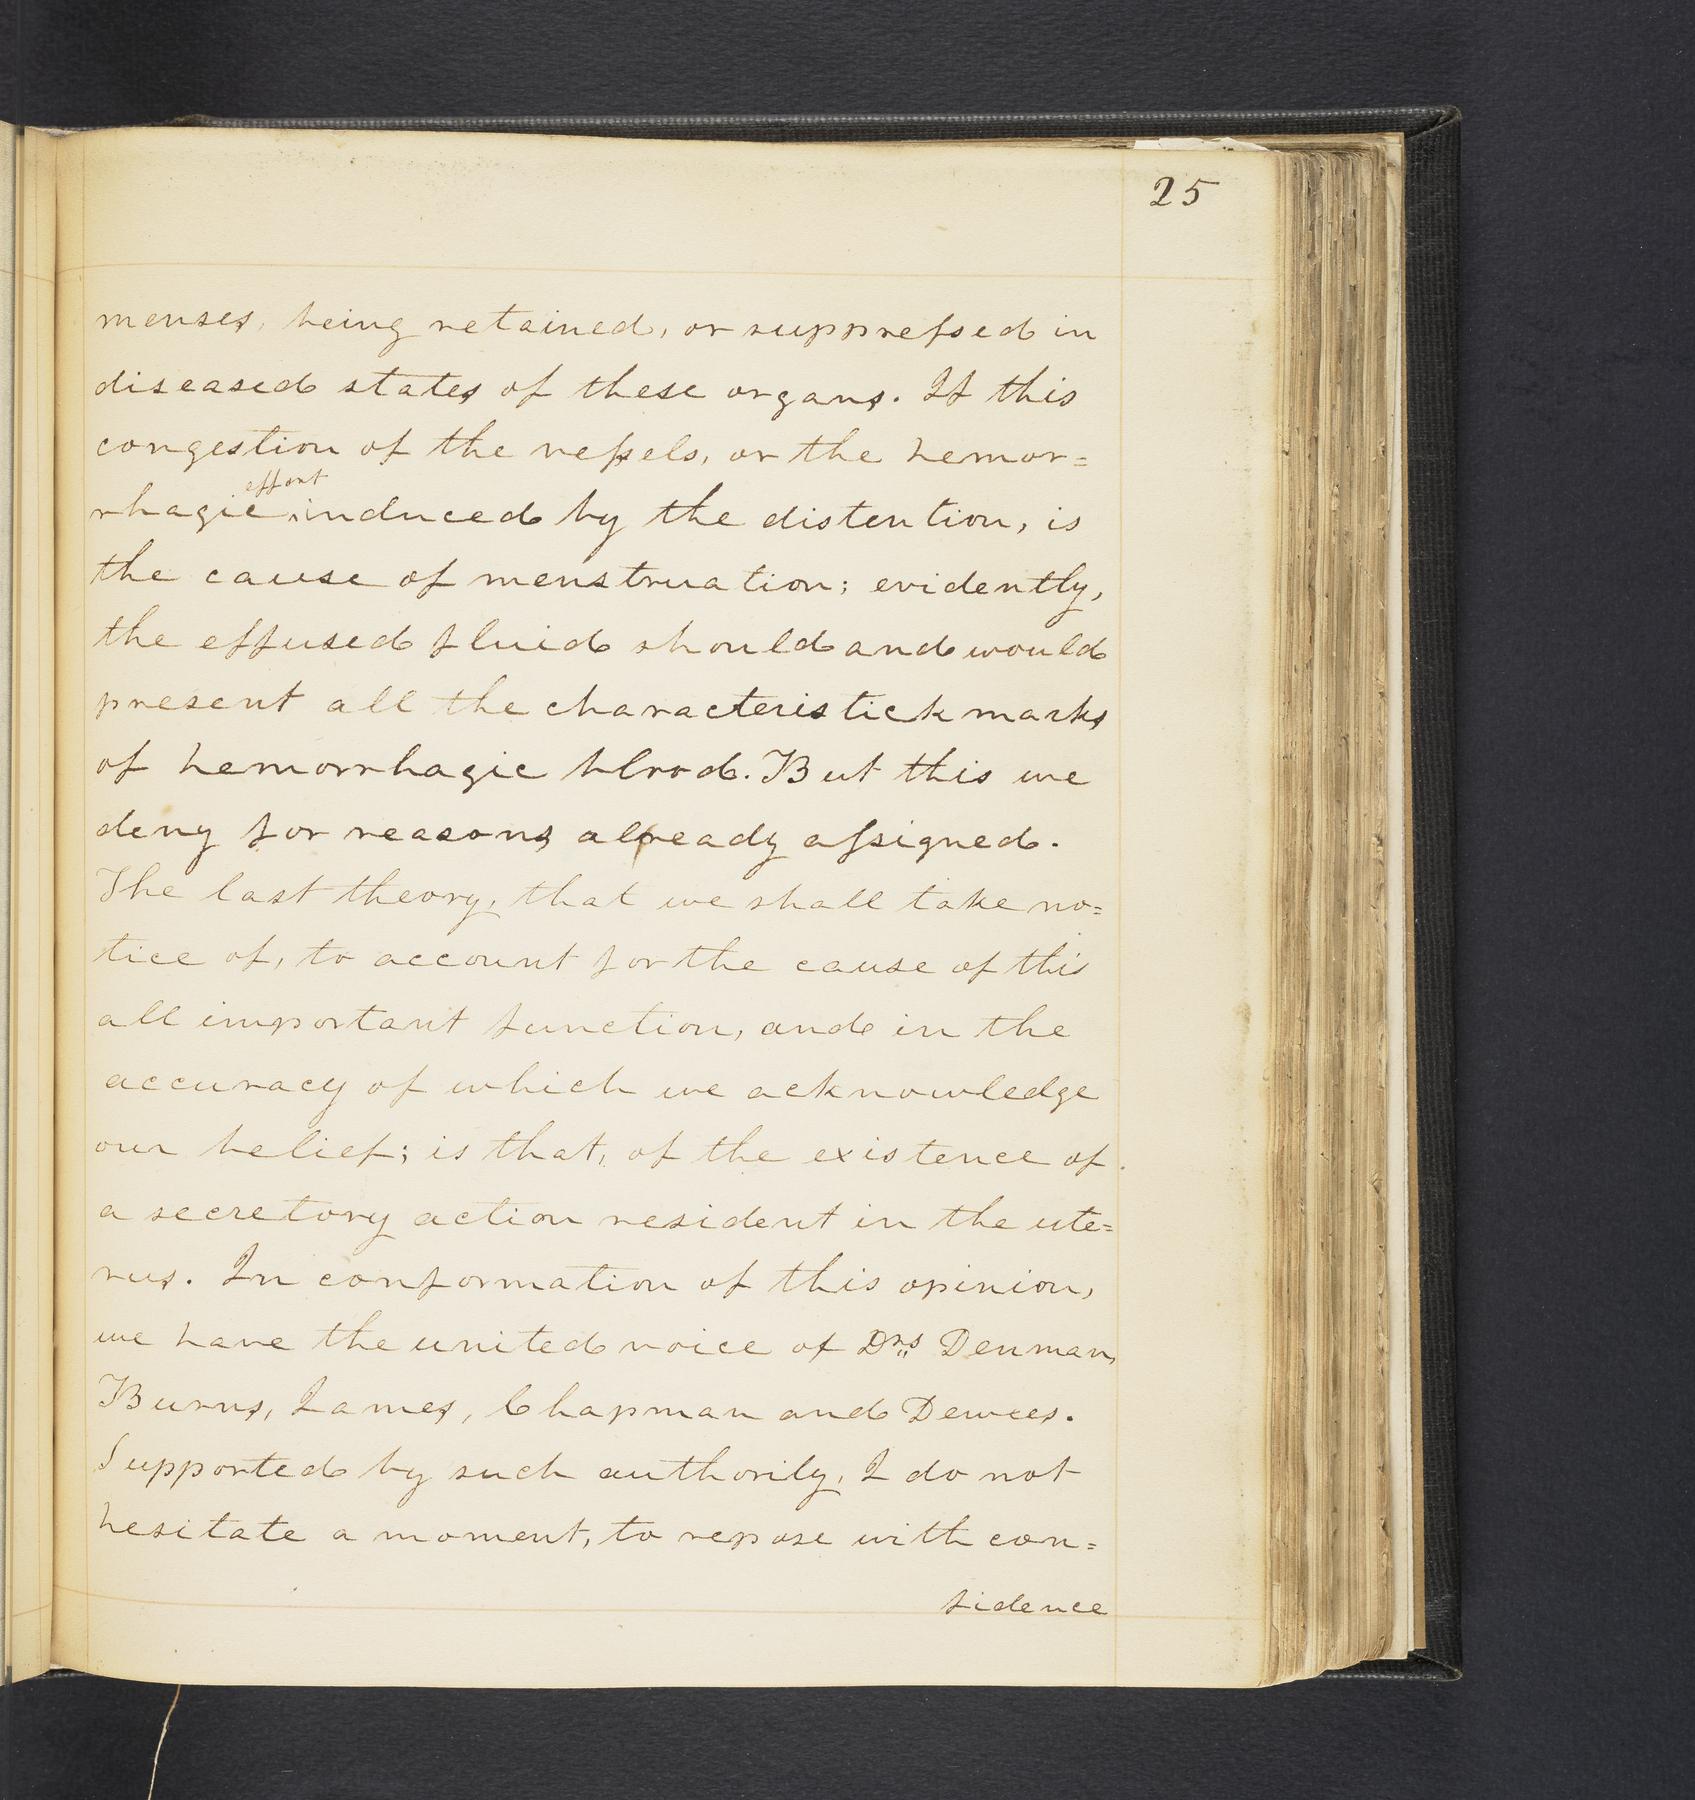 25
menses, being retained, or suppressed in
diseased states of these organs. If this
congestion of the vessels, or the hemor=
effort
rhagic induced by the distention, is
the cause of menstruation; evidently,
the effused fluid should and would
present all the characteristick marks
of hemorrhagic blood. But this we
deny for reasons already assigned.
The last theory, that we shall take no=
tice of, to account for the cause of this
all important function, and in the
accuracy of which we acknowledge
our belief; is that, of the existence of
a secretory action resident in the ute=
rus. In conformation of this opinion,
we have the united voice of Drs Denman,
Burns, James, Chapman and Dewees.
Supported by such authority, I do not
hesitate a moment, to repose with con=
fidence